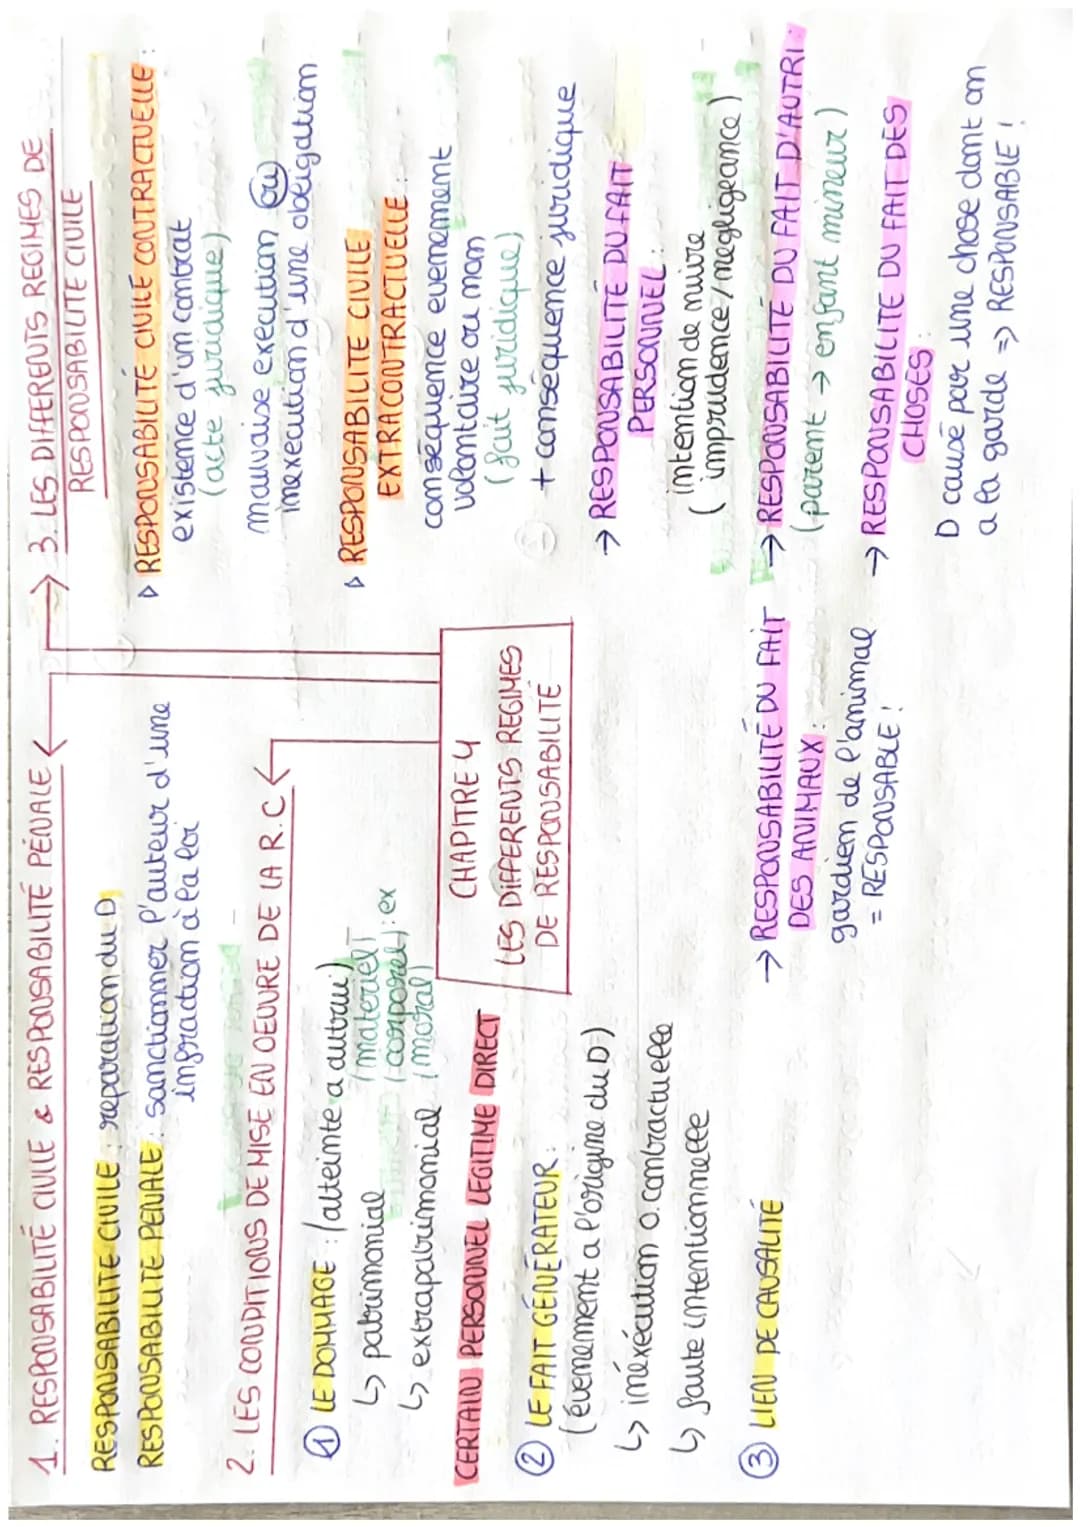 1. RESPONSABILITÉ CIVILE & RESPONSABILITÉ PÉNALE
RESPONSABILITE CIVILE : reparation du D
RESPONSABILITE PENALE : sanctionner l'auteur d'une
infraction à la loi
2. LES CONDITIONS DE MISE EN OEUVRE DE LA R.C
① LE DOMMAGE : (atteinte a autrui)
↳ patrimonial (materiel)
(corporel) : ex
↳ extrapatrimonial (moral)
CERTAIN PERSONNEL LEGITIME DIRECT
② LE FAIT GÉNÉRATEUR :
(évenement a l'origine du D)
↳ inéxécution o. contractuelle
↳ faute intentionnelle
③ LIEN DE CAUSALITÉ
CHAPITRE 4
LES DIFFERENTS REGIMES
DE RESPONSABILITÉ
3. LES DIFFERENTS REGIMES DE
RESPONSABILITE CIVILE
▹ RESPONSABILITÉ CIVILE CONTRACTUELLE :
existence d'un contrat
(acte juridique)
mauvaise execution ou
inexecution d'une obligation
▹ RESPONSABILITE CIVILE
EXTRACONTRACTUELLE :
conséquence evenement
volontaire ou non
(fait juridique)
+ conséquence juridique
→ RESPONSABILITÉ DU FAIT
PERSONNEL :
intention de nuire
(imprudence/negligeance)
→ RESPONSABILITÉ DU FAIT D'AUTRI :
(parent → enfant mineur)
→ RESPONSABILITE DU FAIT DES
CHOSES :
D causé par une chose dont on
a la garde => RESPONSABLE !
→ RESPONSABILITÉ DU FAIT
DES ANIMAUX :
gardien de l'animal
= RESPONSABLE !